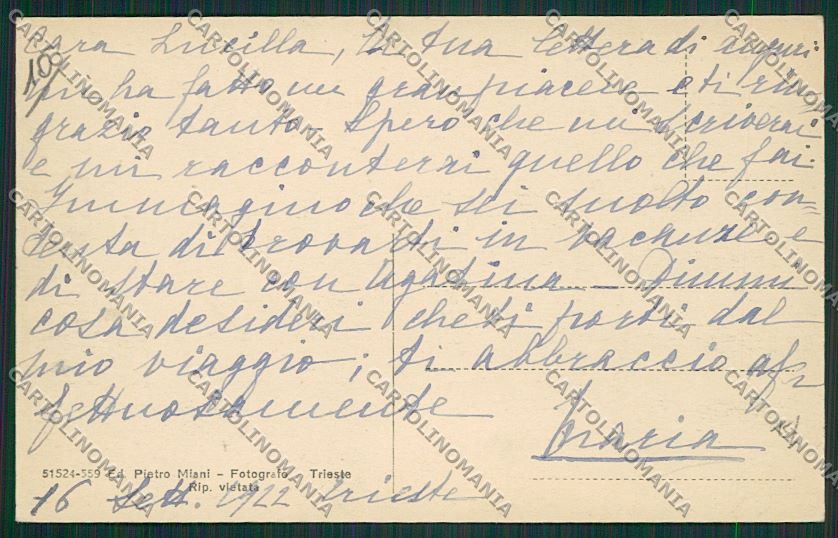 Cara Lucilla, la tua lettera di auguri
mi ha fatto un gran piacere e ti rin-
grazio tanto. Spero che mi scriverai
e mi racconterai quello che fai.
Immagino che sei molto con-
tenta di trovarti in vacanze e
di stare con Agatina – Dimmi
cosa desideri che ti porti dal
mio viaggio; ti abbraccio af-
fettuosamente
Maria
51524-559 Ed. Pietro Miani – Fotografo – Trieste
Rip. vietata
16 Sett. 1922 Trieste
109
CARTOLINOMANIA